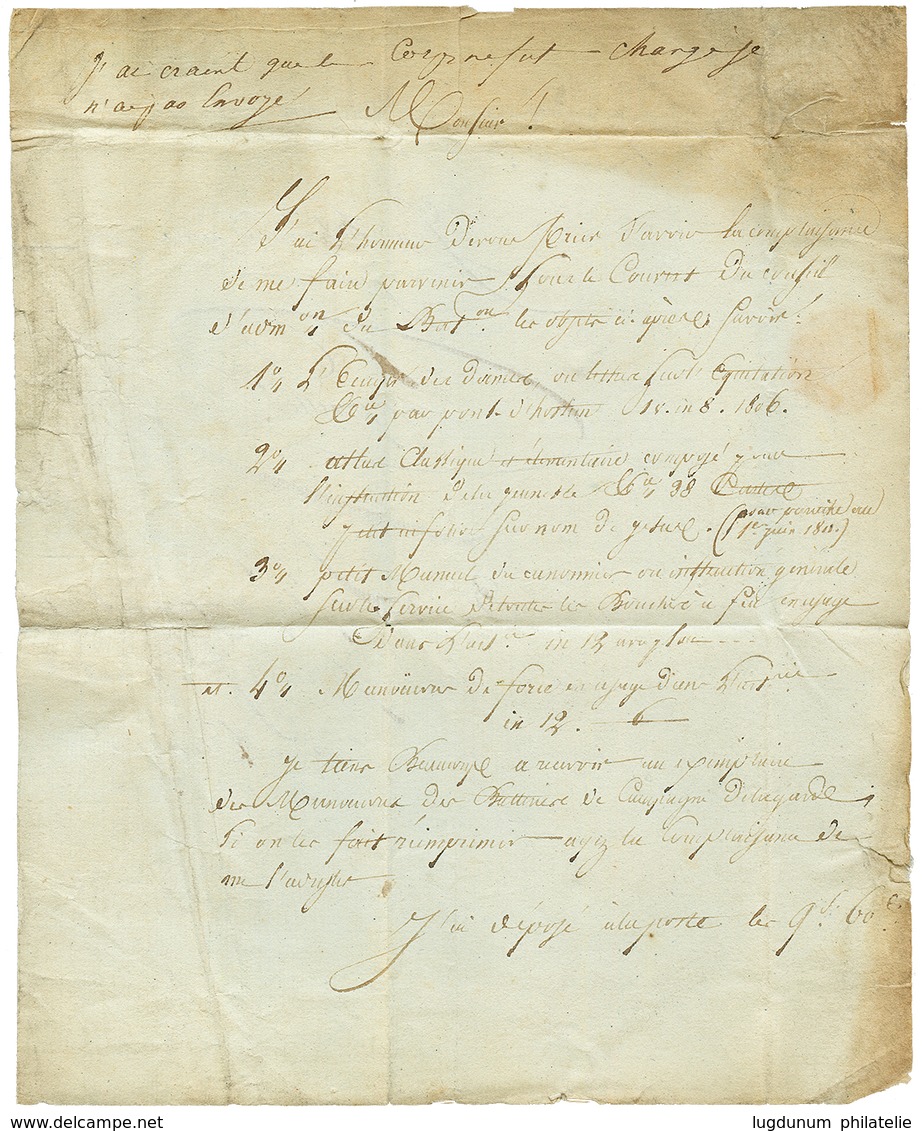 J'ai craint que le Corp ne fut Change je
n'ai pas Envoyé
Monsieur !
J'ai l'honneur de vous Prier d'avoir la complaisance
de me faire parvenir Sous le Couvert du conseil
d'adm.on du Bat.on les objets ci après, Savoir :
1° L' des dames ou lettres sur l'Equitation
par pont d'hostun 1v. in 8. 1806.
2° atlas Classique et élémentaire composé pour
l'instruction de la jeunesse 38 Cartes
petit in folio Sur nom de jesus. (
1er juin 1811.)
3° petit Manuel du canonnier ou instruction générale
sur le Service de toutes les Bouches à feu en usage
Dans l'art.ie in 12
et. 4° Manœuvres de force en usage dans l'art.ie
in 12. 6
je tiens Beaucoup a recevoir un exemplaire
des Manœuvres des Batteries de Campagne de la garde ;
Si on les fait réimprimer ayez la Complaisance de
me l'
J'ai déposé à la poste les 9f. 60c.
www.delcampe.net
lugdunum philatelie